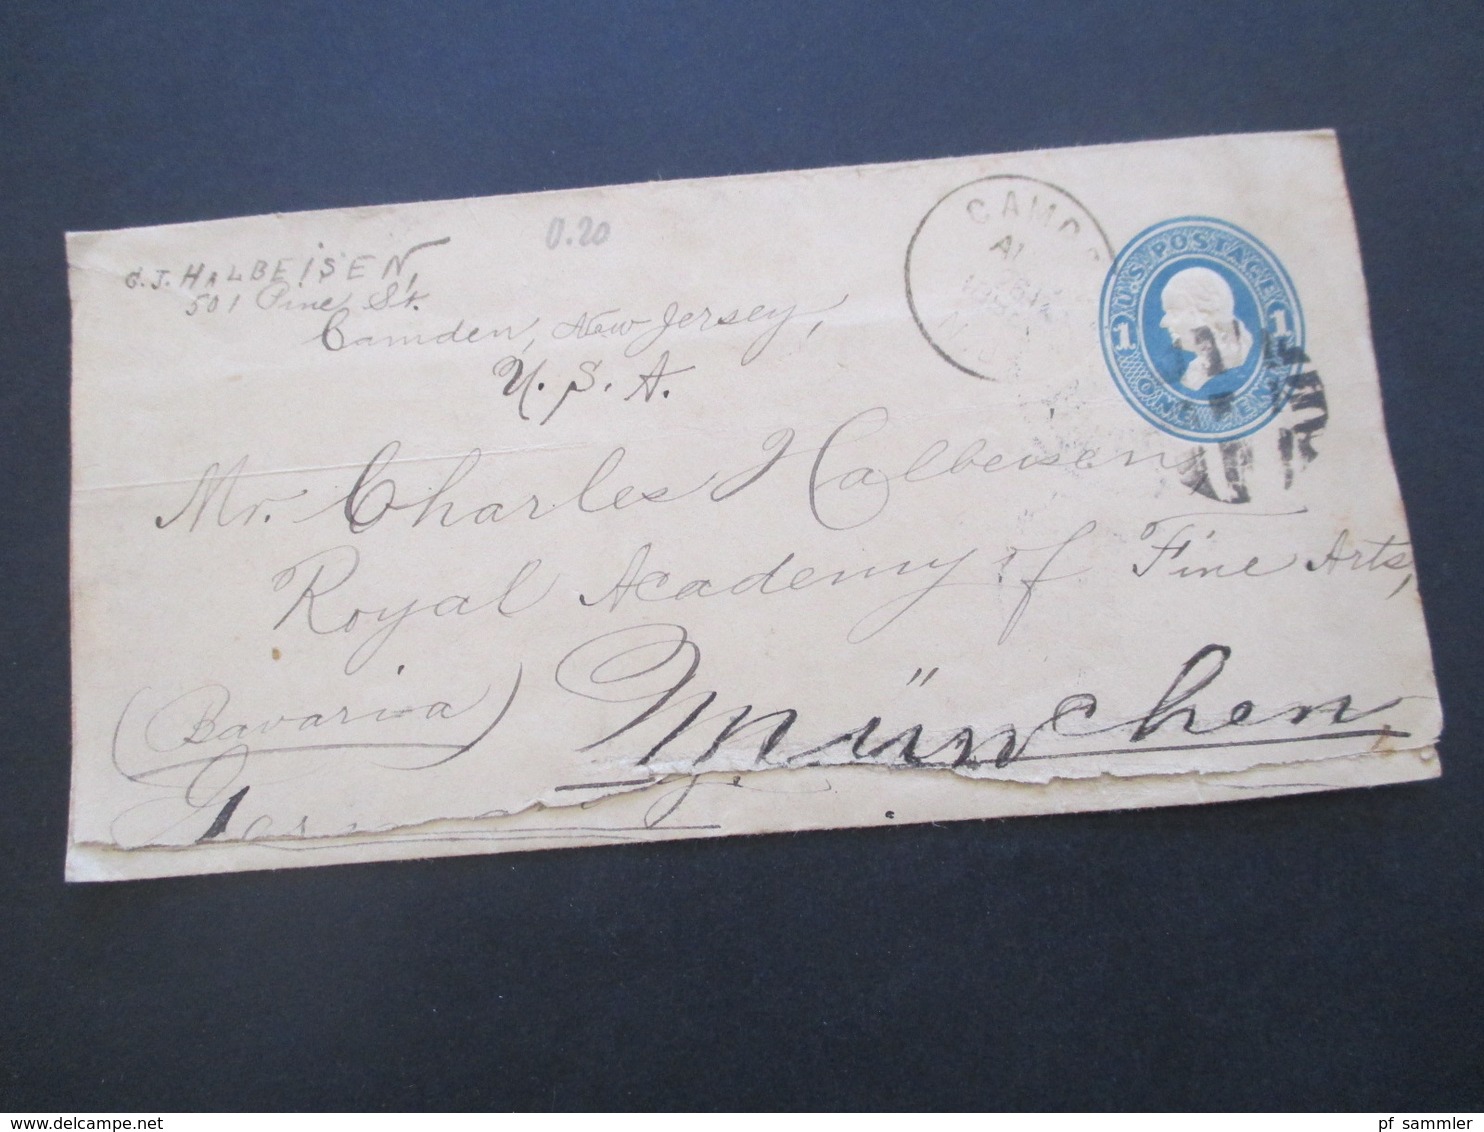 C. J. HALBEISEN,
501 Pine St.
Camden, New Jersey,
U. S. A.
0.20
CAMD
N.J.
U.S. POSTAGE
1 1
ONE CENT
Mr. Charles Halbeisen
Royal Academy of Fine Arts,
(Bavaria) München
Germany
pf_sammler